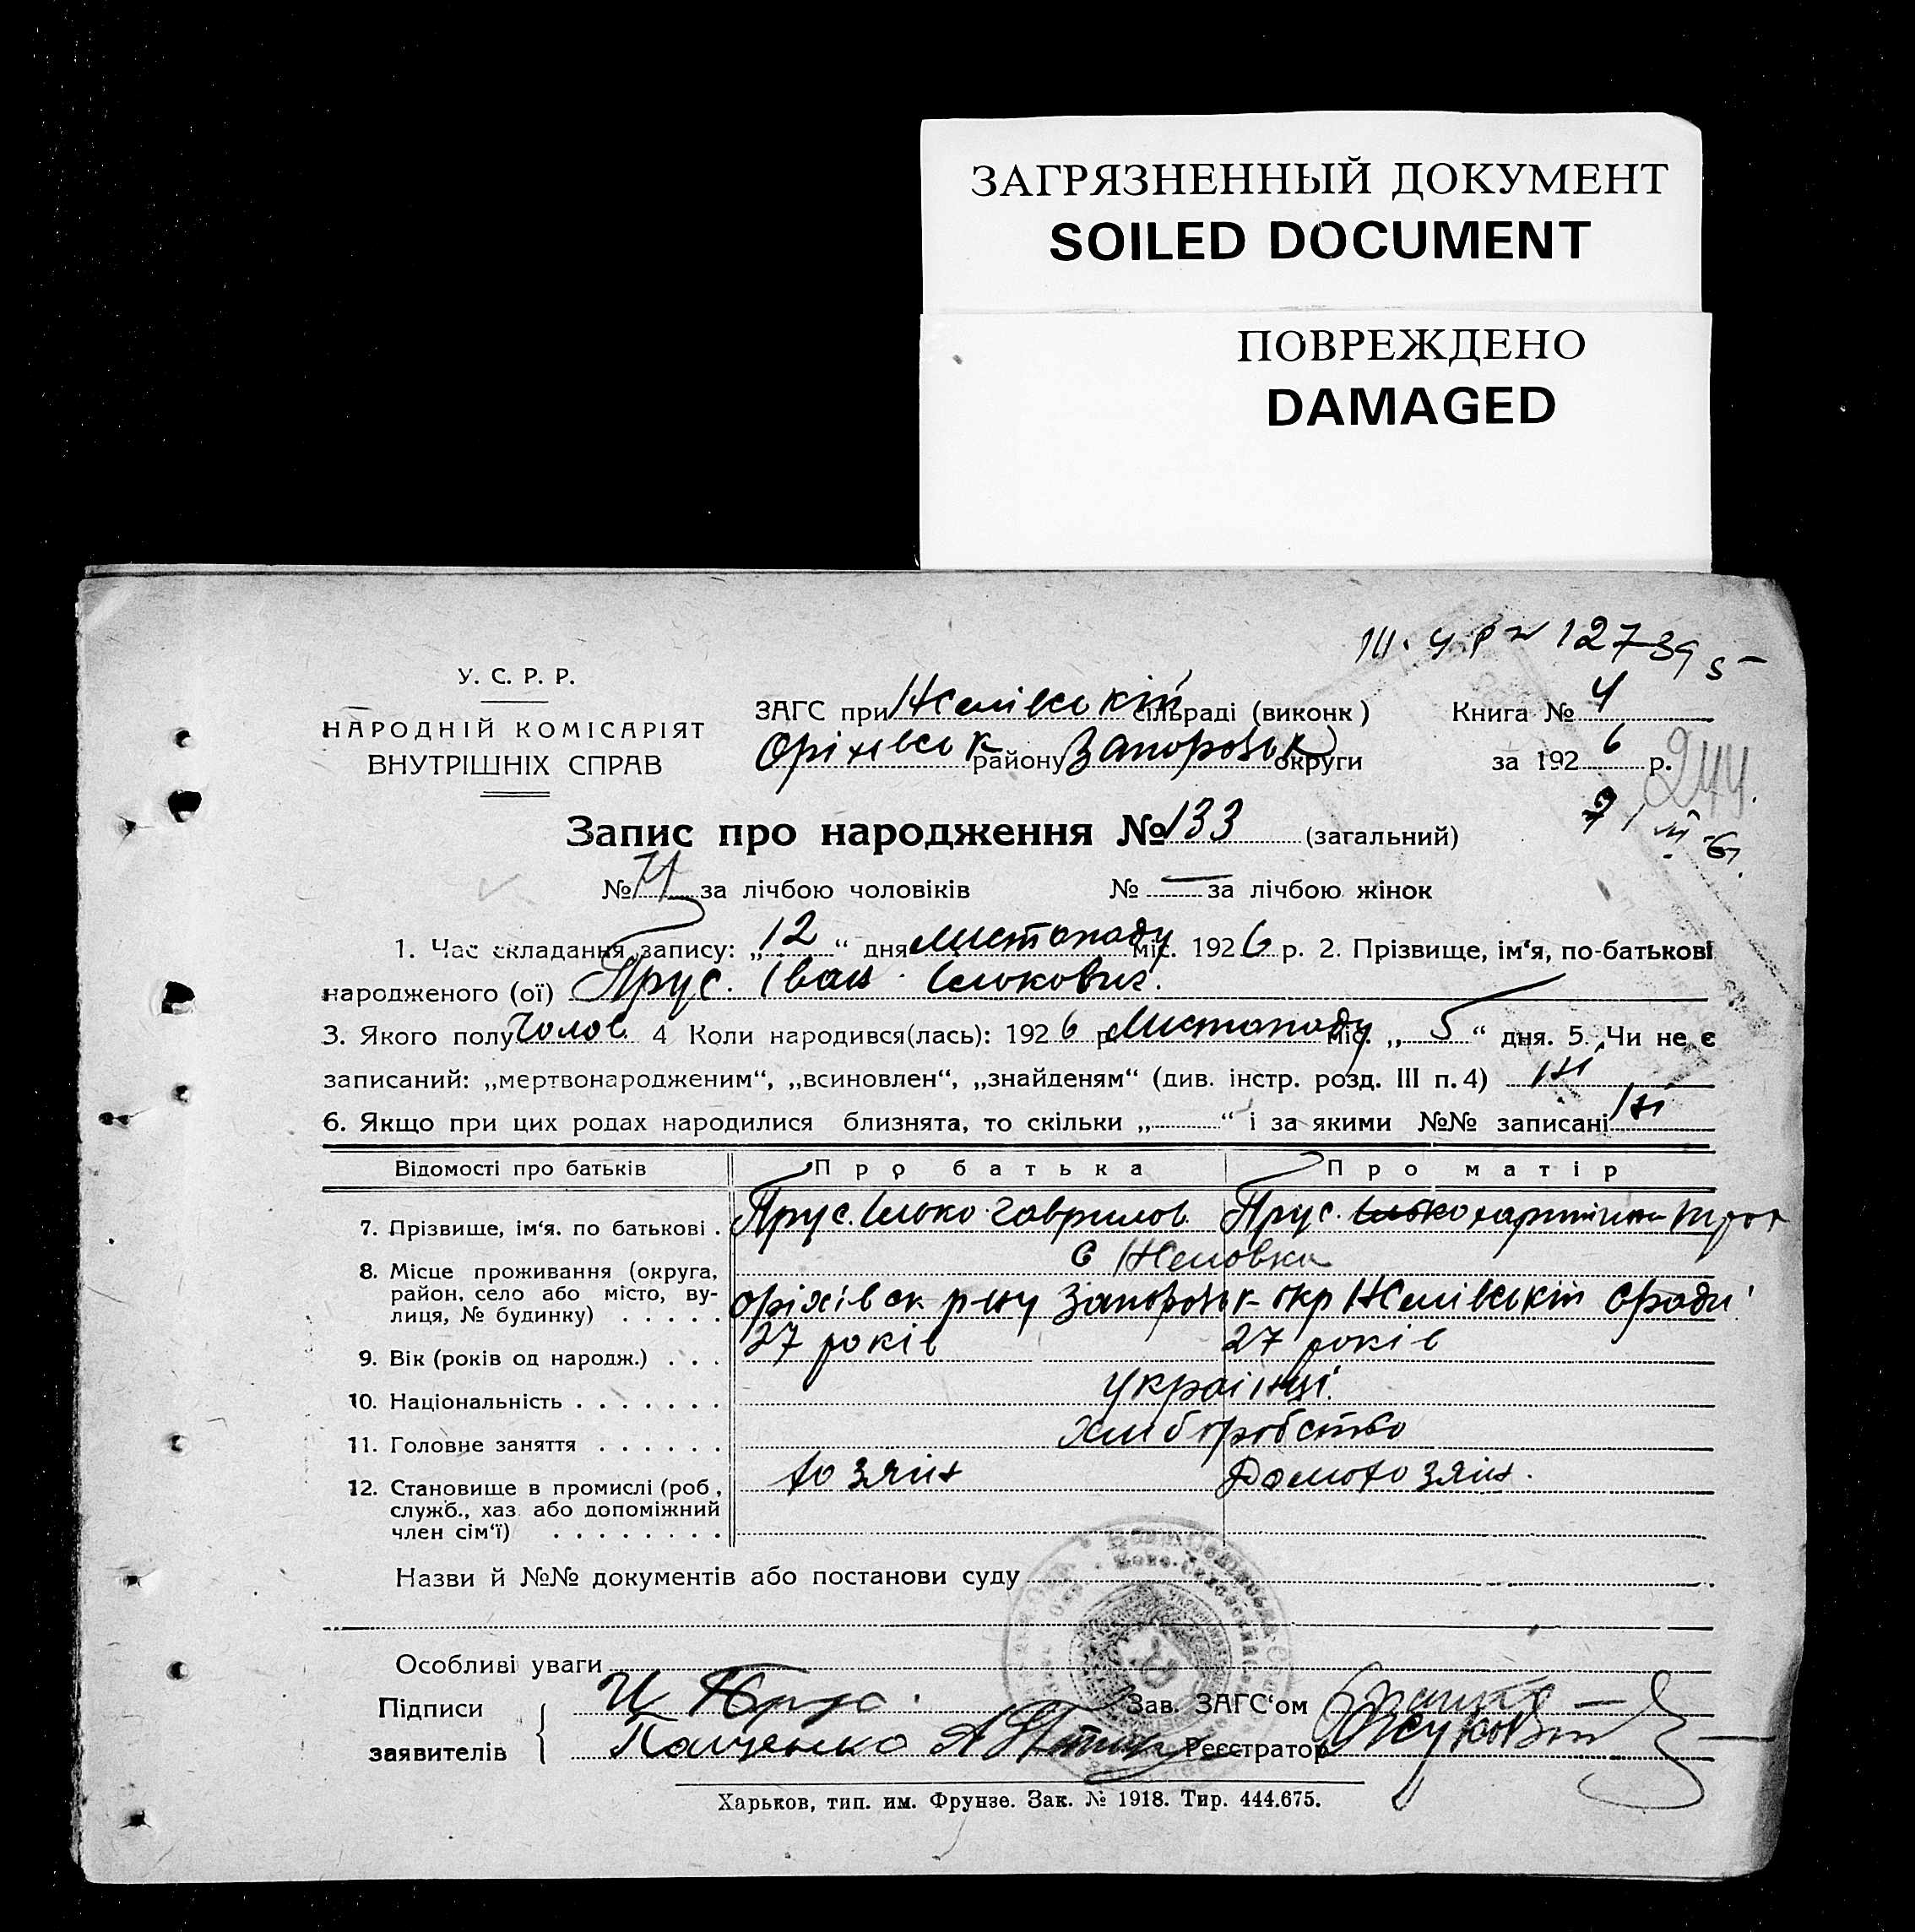 ЗАГРЯЗНЕННЫЙ ДОКУМЕНТ
SOILED DOCUMENT
ПОВРЕЖДЕНО
DAMAGED
127-39
У. С. Р. Р.
НАРОДНІЙ КОМІСАРІЯТ
ВНУТРІШНІХ СПРАВ
ЗАГС при Жемівській сільраді (виконк) Книга № 4
Оріхівськ району Запорозьк округи за 1926 р.
244
Запис про народження № 133 (загальний)
№ 71 за лічбою чоловіків № — за лічбою жінок
1. Час складання запису: „12“ дня Листопаду міс. 1926 р. 2. Прізвище, ім‘я, по-батькові
народженого (ої) Прус. Іван Ількович.
3. Якого полу Чолов. 4 Коли народився(лась): 1926 р Листопаду міс. „5“ дня. 5. Чи не є
записаний: „мертвонародженим“, „всиновлен“, „знайденям“ (див. інстр. розд. III п. 4) Ні
6. Якщо при цих родах народилися близнята, то скільки „ “ і за якими №№ записані Ні
Відомості про батьків Про батька Про матір
7. Прізвище, ім‘я. по батькові . Прус. Ілько Гаврилов. Прус.
с Жемовка
8. Місце проживання (округа,
район, село або місто, ву-
лиця, № будинку) . . . . . Оріхівськ р-ну Запорозьк окр Жемівській сради
9. Вік (років од народж.) . . . 27 років 27 років
10. Національність . . . . . . . Українці.
11. Головне заняття . . . . . . Хліборобство
12. Становище в промислі (роб, хозяін Домохозяін.
служб., хаз або допоміжний
член сім‘ї) . . . . . . . .
Назви й №№ документів або постанови суду
Особливі уваги
Підписи И Прус. Зав. ЗАГС‘ом
заявителів Пащенко А Реєстратор
Харьков, тип. им. Фрунзе. Зак. № 1918. Тир. 444.675.